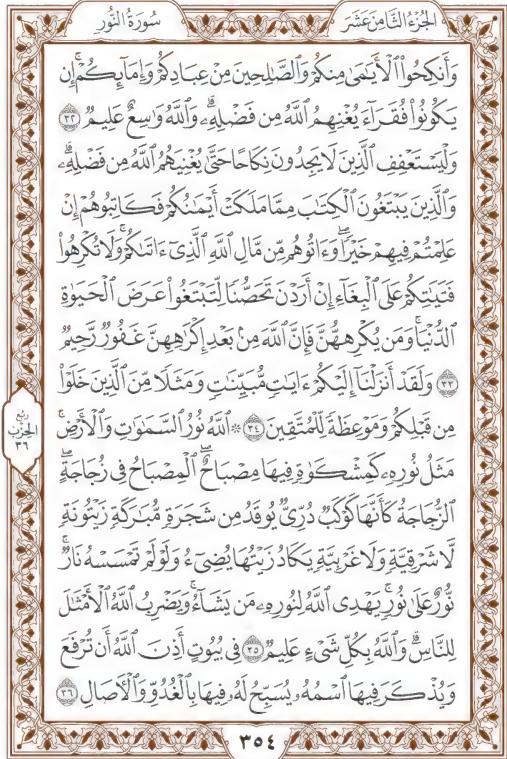 الجُزْءُ الثَّامِنَ عَشَرَ
سُورَةُ النُّورِ
وَأَنكِحُوا۟ ٱلْأَيَـٰمَىٰ مِنكُمْ وَٱلصَّـٰلِحِينَ مِنْ عِبَادِكُمْ وَإِمَآئِكُمْ ۚ إِن
يَكُونُوا۟ فُقَرَآءَ يُغْنِهِمُ ٱللَّهُ مِن فَضْلِهِۦ ۗ وَٱللَّهُ وَٰسِعٌ عَلِيمٌ ٣٢
وَلْيَسْتَعْفِفِ ٱلَّذِينَ لَا يَجِدُونَ نِكَاحًا حَتَّىٰ يُغْنِيَهُمُ ٱللَّهُ مِن فَضْلِهِۦ ۗ
وَٱلَّذِينَ يَبْتَغُونَ ٱلْكِتَـٰبَ مِمَّا مَلَكَتْ أَيْمَـٰنُكُمْ فَكَاتِبُوهُمْ إِنْ
عَلِمْتُمْ فِيهِمْ خَيْرًا ۖ وَءَاتُوهُم مِّن مَّالِ ٱللَّهِ ٱلَّذِىٓ ءَاتَىٰكُمْ ۚ وَلَا تُكْرِهُوا۟
فَتَيَـٰتِكُمْ عَلَى ٱلْبِغَآءِ إِنْ أَرَدْنَ تَحَصُّنًا لِّتَبْتَغُوا۟ عَرَضَ ٱلْحَيَوٰةِ
ٱلدُّنْيَا ۚ وَمَن يُكْرِههُّنَّ فَإِنَّ ٱللَّهَ مِنۢ بَعْدِ إِكْرَٰهِهِنَّ غَفُورٌ رَّحِيمٌ
٣٣ وَلَقَدْ أَنزَلْنَآ إِلَيْكُمْ ءَايَـٰتٍ مُّبَيِّنَـٰتٍ وَمَثَلًا مِّنَ ٱلَّذِينَ خَلَوْا۟
مِن قَبْلِكُمْ وَمَوْعِظَةً لِّلْمُتَّقِينَ ٣٤ ۞ ٱللَّهُ نُورُ ٱلسَّمَـٰوَٰتِ وَٱلْأَرْضِ ۚ
مَثَلُ نُورِهِۦ كَمِشْكَوٰةٍ فِيهَا مِصْبَاحٌ ۖ ٱلْمِصْبَاحُ فِى زُجَاجَةٍ ۖ
ٱلزُّجَاجَةُ كَأَنَّهَا كَوْكَبٌ دُرِّىٌّ يُوقَدُ مِن شَجَرَةٍ مُّبَـٰرَكَةٍ زَيْتُونَةٍ
لَّا شَرْقِيَّةٍ وَلَا غَرْبِيَّةٍ يَكَادُ زَيْتُهَا يُضِىٓءُ وَلَوْ لَمْ تَمْسَسْهُ نَارٌ ۚ
نُّورٌ عَلَىٰ نُورٍ ۗ يَهْدِى ٱللَّهُ لِنُورِهِۦ مَن يَشَآءُ ۚ وَيَضْرِبُ ٱللَّهُ ٱلْأَمْثَـٰلَ
لِلنَّاسِ ۗ وَٱللَّهُ بِكُلِّ شَىْءٍ عَلِيمٌ ٣٥ فِى بُيُوتٍ أَذِنَ ٱللَّهُ أَن تُرْفَعَ
وَيُذْكَرَ فِيهَا ٱسْمُهُۥ يُسَبِّحُ لَهُۥ فِيهَا بِٱلْغُدُوِّ وَٱلْـَٔاصَالِ ٣٦
ربع
الحِزْب
٣٦
٣٥٤